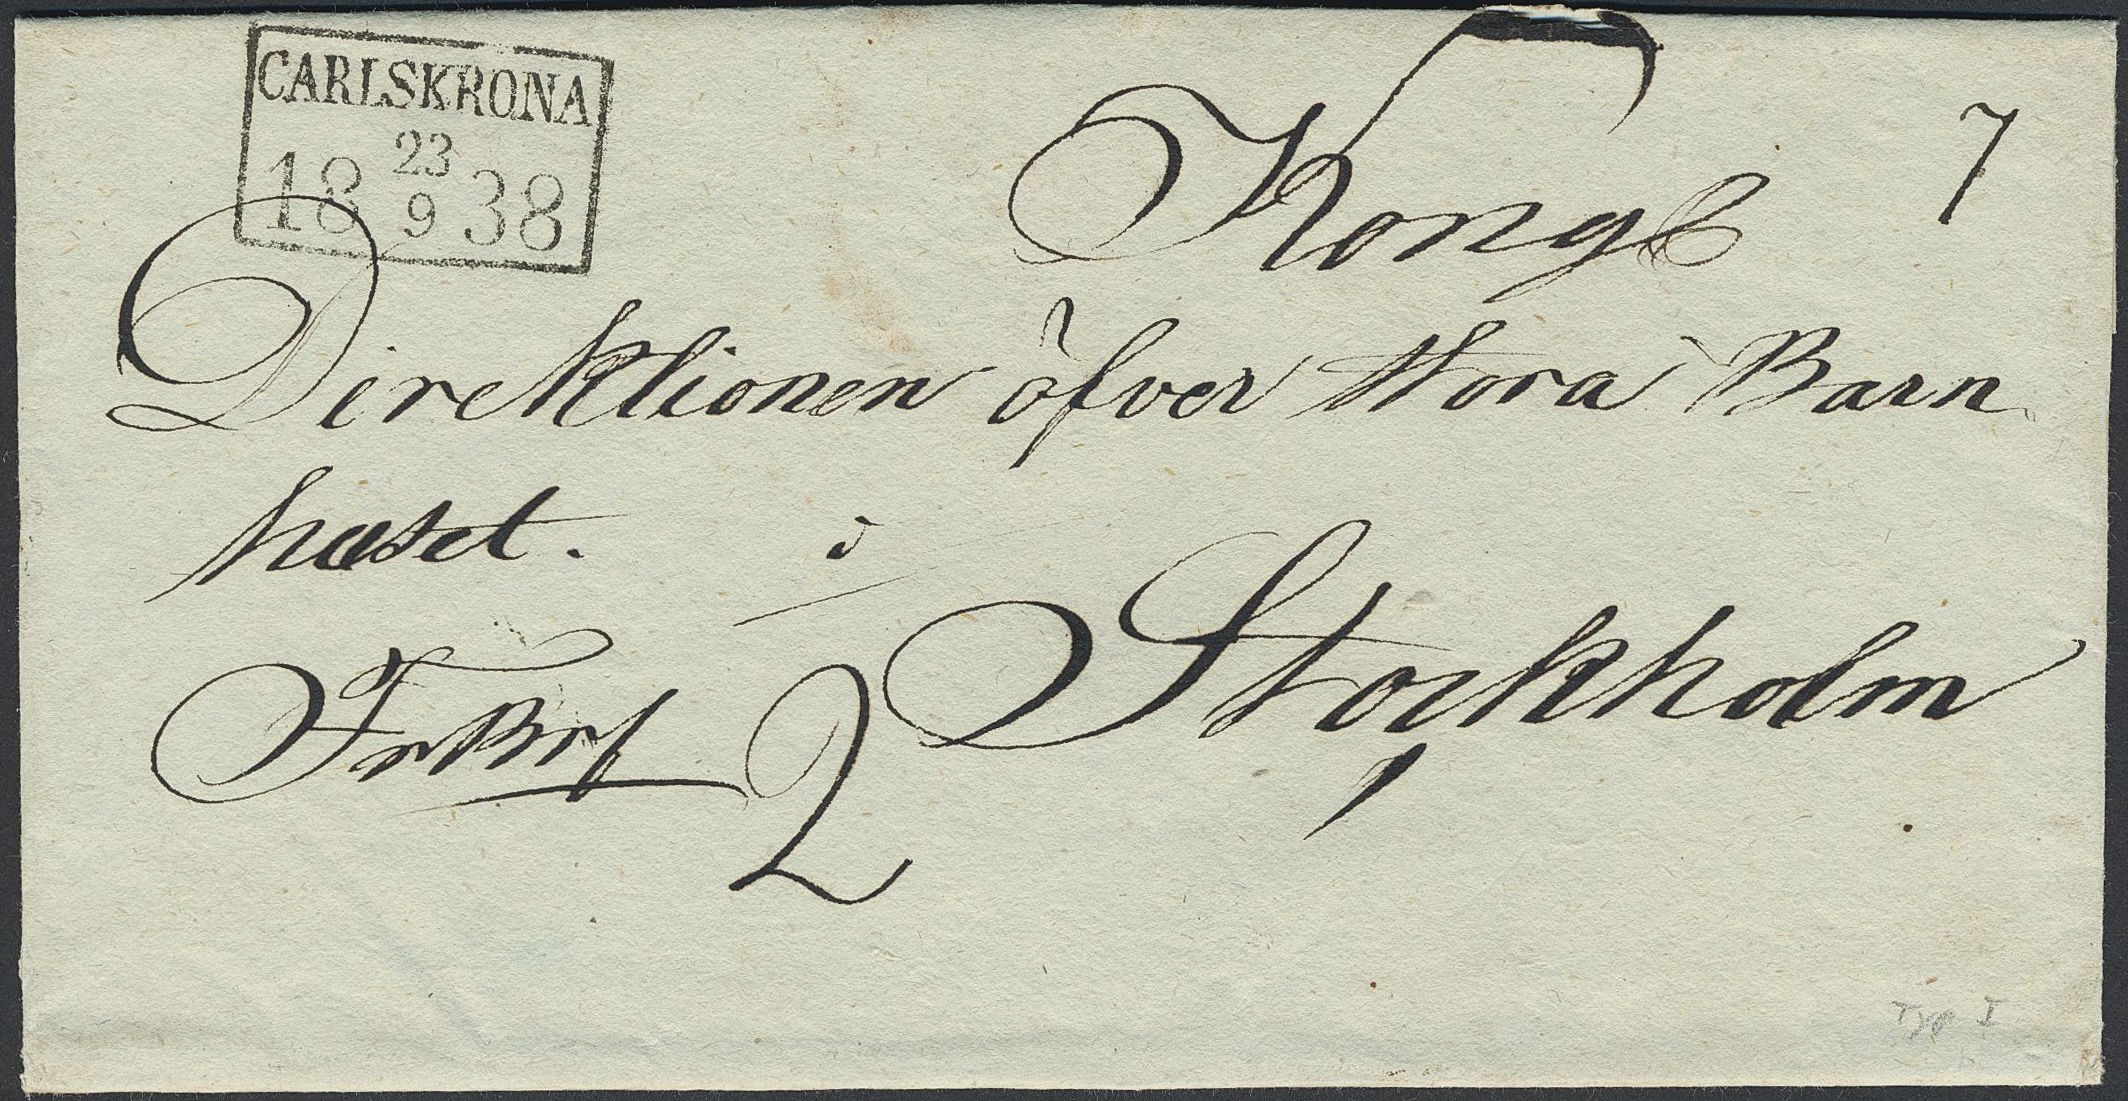 CARLSKRONA
23
18 38
9
7
Kongl
Direktionen öfver Stora Barn
huset. i
Stockholm
FrBrf 2
Typ I